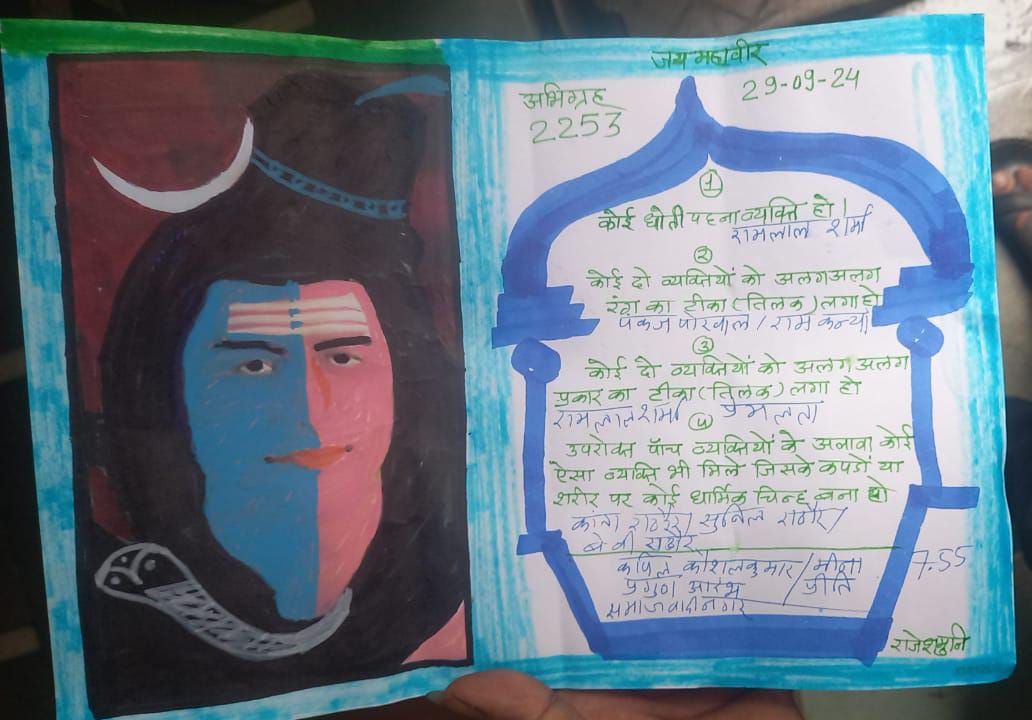 जय महावीर
अभिग्रह
2253
29-09-24
①
कोई धोती पहना व्यक्ति हो।
रामलाल शर्मा
②
कोई दो व्यक्तियों को अलग अलग
रंग का टीका (तिलक) लगा हो
पंकज पोरवाल / राम कन्या
③
कोई दो व्यक्तियों को अलग अलग
प्रकार का टीका (तिलक) लगा हो
रामलाल शर्मा प्रेमलता
④
उपरोक्त पाँच व्यक्तियों के अलावा कोई
ऐसा व्यक्ति भी मिले जिसके कपडों या
शरीर पर कोई धार्मिक चिन्ह बना हो
राठौर / सुनिल राठौर /
बेबी राठौर
कपिल कौशलकुमार / मीना
आरंभ / प्रीति
समाजवादीनगर
7.55
राजेशमुनि